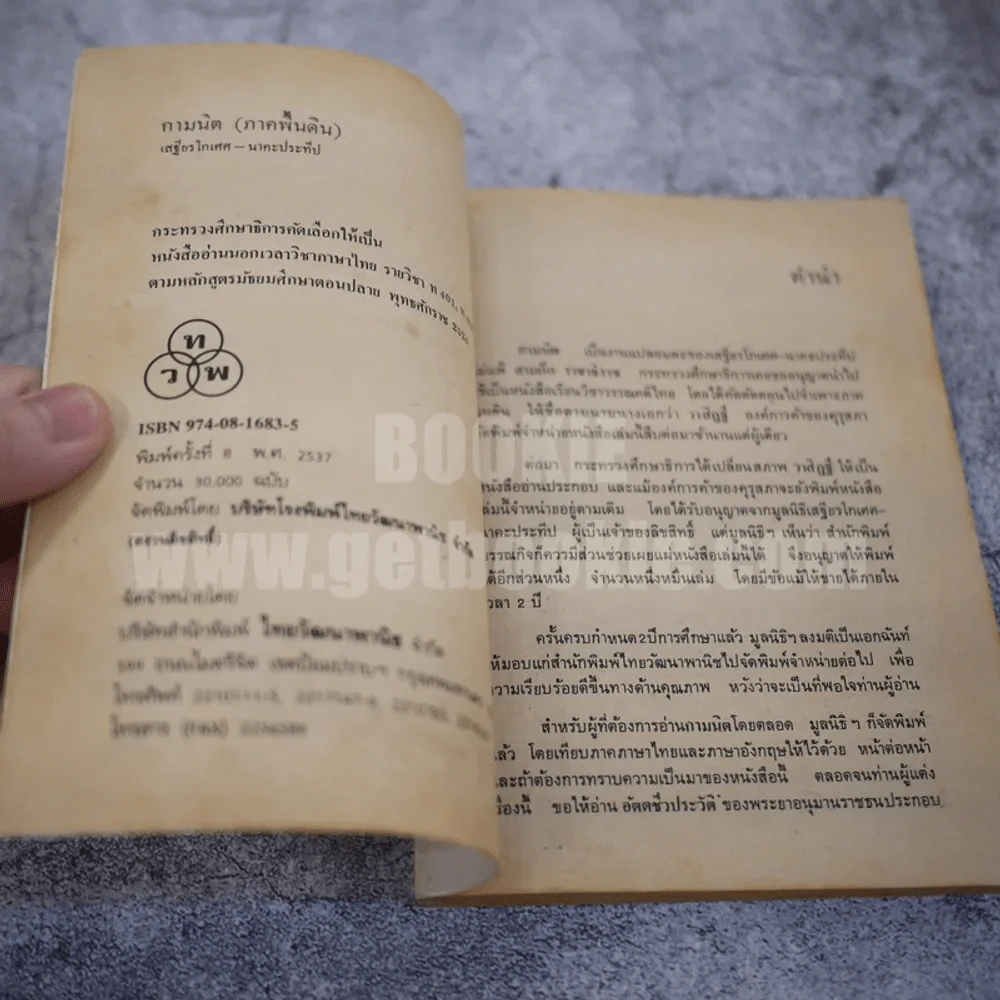 กามนิต (ภาคพื้นดิน)
เสฐียรโกเศศ – นาคะประทีป
กระทรวงศึกษาธิการคัดเลือกให้เป็น
หนังสืออ่านนอกเวลาวิชาภาษาไทย รายวิชา ท 401,
ตามหลักสูตรมัธยมศึกษาตอนปลาย พุทธศักราช
ท
ว พ
ISBN 974-08-1683-5
พิมพ์ครั้งที่ 8 พ.ศ. 2537
จำนวน 30,000 ฉบับ
จัดพิมพ์โดย บริษัทโรงพิมพ์ไทยวัฒนาพานิช จำกัด
จัดจำหน่ายโดย
บริษัทสำนักพิมพ์ ไทยวัฒนาพานิช จำกัด
โทรศัพท์
โทรสาร
คำนำ
กามนิต เป็นงานแปลอมตะของเสฐียรโกเศศ-นาคะประทีป
กระทรวงศึกษาธิการเคยขออนุญาตนำไป
ใช้เป็นหนังสือเรียนวิชาวรรณคดีไทย โดยได้คัดตัดตอนไปจำเพาะภาค
ให้ชื่อตามนายนางเอกว่า วาสิฏฐี องค์การค้าของคุรุสภา
จัดพิมพ์จำหน่ายหนังสือเล่มนี้สืบต่อมาช้านานแต่ผู้เดียว
ต่อมา กระทรวงศึกษาธิการได้เปลี่ยนสภาพ วาสิฏฐี ให้เป็น
หนังสืออ่านประกอบ และแม้องค์การค้าของคุรุสภาจะยังพิมพ์หนังสือ
เล่มนี้จำหน่ายอยู่ตามเดิม โดยได้รับอนุญาตจากมูลนิธิเสฐียรโกเศศ-
นาคะประทีป ผู้เป็นเจ้าของลิขสิทธิ์ แต่มูลนิธิฯ เห็นว่า สำนักพิมพ์
บรรณกิจก็ควรมีส่วนช่วยเผยแผ่หนังสือเล่มนี้ได้ จึงอนุญาตให้พิมพ์
ได้อีกส่วนหนึ่ง จำนวนหนึ่งหมื่นเล่ม โดยมีข้อแม้ให้ขายได้ภายใน
เวลา 2 ปี
ครั้นครบกำหนด2ปีการศึกษาแล้ว มูลนิธิฯ ลงมติเป็นเอกฉันท์
ให้มอบแก่สำนักพิมพ์ไทยวัฒนาพานิชไปจัดพิมพ์จำหน่ายต่อไป เพื่อ
ความเรียบร้อยดีขึ้นทางด้านคุณภาพ หวังว่าจะเป็นที่พอใจท่านผู้อ่าน
สำหรับผู้ที่ต้องการอ่านกามนิตโดยตลอด มูลนิธิฯ ก็จัดพิมพ์
แล้ว โดยเทียบภาคภาษาไทยและภาษาอังกฤษให้ไว้ด้วย หน้าต่อหน้า
และถ้าต้องการทราบความเป็นมาของหนังสือนี้ ตลอดจนท่านผู้แต่ง
เรื่องนี้ ขอให้อ่าน อัตตชีวประวัติ ของพระยาอนุมานราชธนประกอบ
BOOKIE